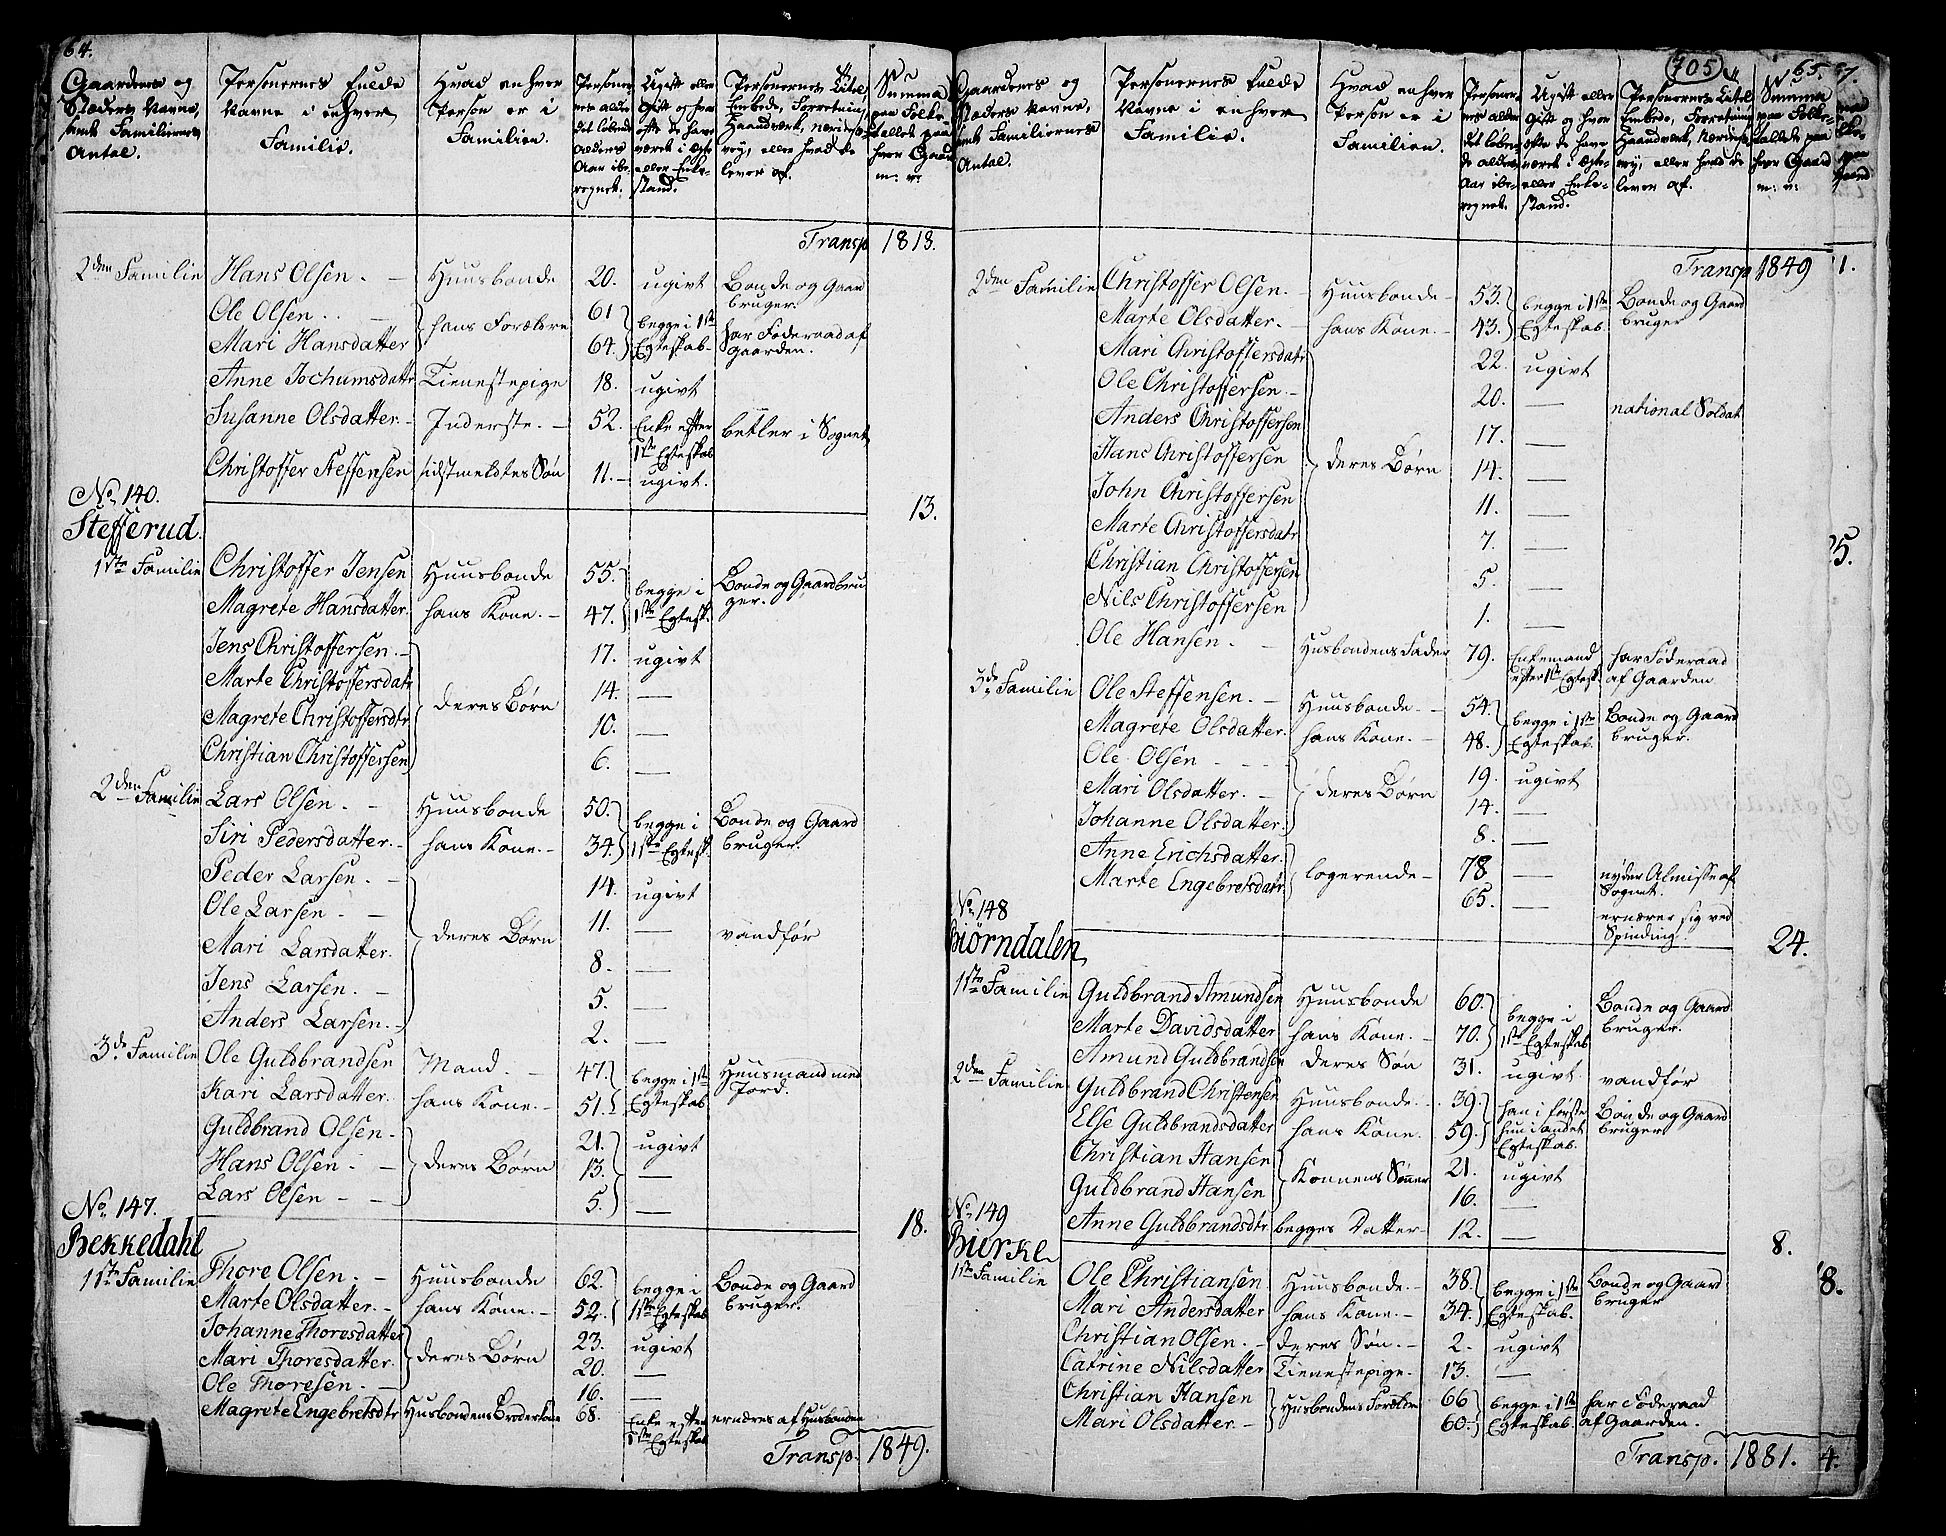 64.
Gaardenes og Stæders Navne, samt Familiernes Antal. | Personernes fulde Navne i enhver Familie. | Hvad enhver Person er i Familien. | Personernes alder det løbende Alders Aar iberegnet. | Ugift eller Gift og hvor ofte de have været i Ægte- eller Enkestand. | Personernes Titel, Embede, Forretning, Haandværk, Næringsvey, eller hvad de lever af. | Summa paa Folketallet paa hver Gaard m: v:
Transp 1813.
2den Familie Hans Olsen. – Huusbonde 20. ugivt Bonde og Gaard bruger.
Ole Olsen . . – hans Forældre 61 begge i 1ste Egteskab. har Föderaad af gaarden.
Mari Hansdatter 64.
Anne Jochumsdattr Tienestepige 18. ugivt
Susanne Olsdatter. – Inderste. – 52. Enke efter 1ste Egteskab betler i Sognet
Christoffer Steffensen sidstmeldtes Søn 11. – ugivt.
No 140. 13.
Stefferud.
1ste Familie Christoffer Jensen Huusbonde 55. begge i 1ste Egtesk. Bonde og Gaardbruger. –
Magrete Hansdatter. hans Kone. – 47.
Jens Christoffersen. – deres Börn 17. ugivt
Marte Christoffersdatr 14. —
Magrete Christoffersdtr 10. —
Christian Christoffersen 6. —
2den Familie Lars Olsen. – Huusbonde 50. begge i 1ste Egtesk. Bonde og Gaard bruger.
Siri Pedersdatter. – hans Kone. – 34.
Peder Larsen. – deres Börn 14. ugivt
Ole Larsen – 11. — vandför
Mari Larsdatter. 8. —
Jens Larsen. – 5. —
Anders Larsen. – 2. —
3de Familie Ole Guldbrandsen Mand. – 47. begge i 1ste Egteskab Huusmand med Jord.
Kari Larsdatter. hans Kone. – 51.
Guldbrand Olsen. – deres Börn 21. ugivt
Hans Olsen. – 13. —
Lars Olsen – – 5. —
No 147. 18.
Bekkedahl
1ste Familie Thore Olsen. – Huusbonde 62. begge i 1ste Egteskab Bonde og Gaard bruger.
Marte Olsdatter. – hans Kone. – 52.
Johanne Thoresdatter deres Börn 23. ugivt
Mari Thoresdatter. 20. —
Ole Thoresen. – 16. —
Magrete Engebretsdtr Husbondens Broderkone 68. Enke efter 1ste Egteskab ernæres af Husbonden
Transp. 1849.
705 65.
Gaardenes og Stæders Navne, samt Familiernes Antal. | Personernes fulde Navne i enhver Familie. | Hvad enhver Person er i Familien. | Personernes alder det løbende alders Aar iberegnet. | Ugift eller Gift og hvor ofte de have været i Ægte- eller Enkestand. | Personernes Titel, Embede, Forretning, Haandværk, Næringsvey, eller hvad de lever af. | Summa paa Folketallet paa hver Gaard m: v:
Transp 1849 1.
2den Familie Christoffer Olsen. – Huusbonde – 53. begge i 1ste Egteskab. Bonde og Gaard bruger
Marte Olsdatter. – hans Kone. – 43.
Mari Christoffersdatr deres Börn 22. ugivt
Ole Christoffersen. – 20. — national Soldat
Anders Christoffersen 17. —
Hans Christoffersen 14. —
John Christoffersen 11. —
Marte Christoffersdatr 7. —
Christian Christoffersen 5. —
Nils Christoffersen 1. —
Ole Hansen. – Husbondens Fader 79. Enkemand efter 1ste Egtesk. har Föderaad af Gaarden
3de Familie Ole Steffensen. – Huusbonde. – 54. begge i 1ste Egteskab. Bonde og Gaard bruger.
Magrete Olsdatter. hans Kone. – 48.
Ole Olsen – deres Börn 19. ugivt
Mari Olsdatter. – 14. —
Johanne Olsdatter. 8. —
Anne Erichsdatter. logerende – 78 — nyder Almisse af Sognet.
Marte Engebretsdatr 65. — ernærer sig ved Spinding.
No 148 24.
Biörndalen
1ste Familie Guldbrand Amundsen Huusbonde 60. begge i 1ste Egteskab Bonde og Gaard bruger.
Marte Davidsdatter hans Kone. – 70.
Amund Guldbrandsen deres Sön 31. ugivt. vandför
2den Familie Guldbrand Christensen Huusbonde. – 39. han i förste hun i andet Egteskab. Bonde og Gaard bruger
Else Guldbrandsdatter hans Kone. 59.
Christian Hansen Konnens Sönner 21. ugivt
Guldbrand Hansen 16. —
Anne Guldbrandsdtr begges Datter – 12. —
No 149 8.
Bierke
1ste Familie Ole Christiansen Huusbonde. – 38. begge i 1ste Egteskab. Bonde og Gaard bruger
Mari Andersdatter hans Kone. – 34.
Christian Olsen. – deres Sön. – 2. ugivt
Catrine Nilsdatter Tienestepige. – 13. —
Christian Hansen Husbondens Foreldre 66 begge i 1ste Egteskab. har Föderaad af Gaarden.
Mari Olsdatter. – 60.
Transp. 1881. 4.